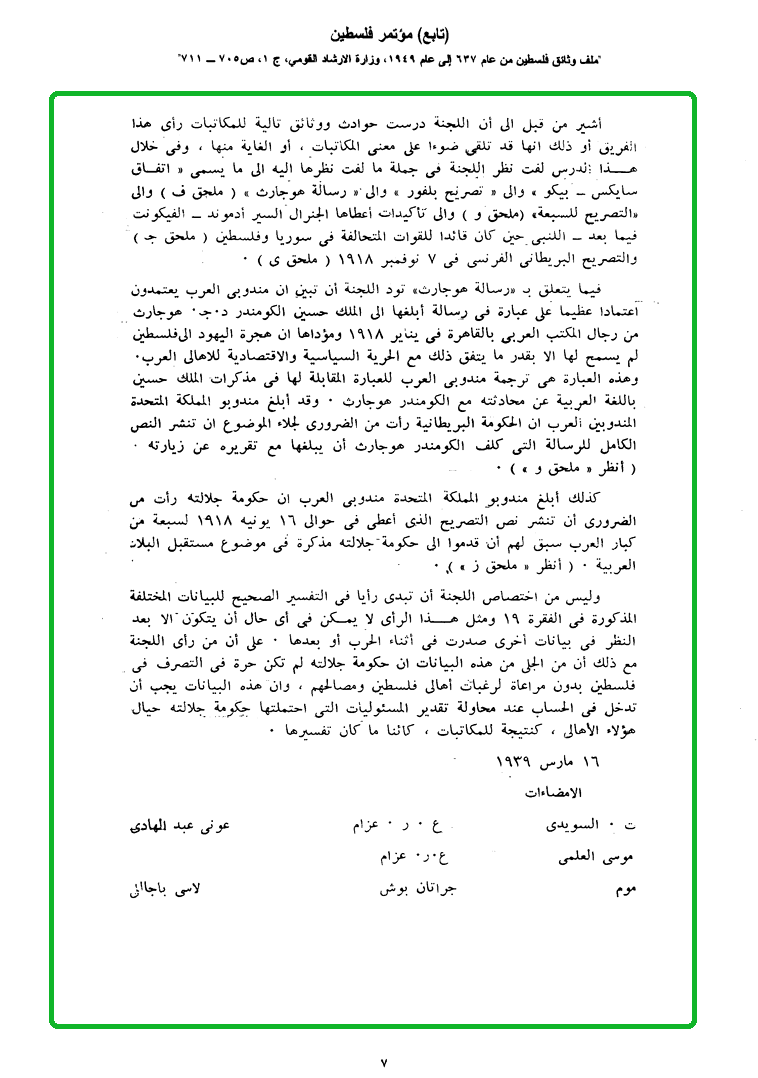 (تابع) مؤتمر فلسطين
"ملف وثائق فلسطين من عام ٦٣٧ إلى عام ١٩٤٩، وزارة الارشاد القومي، ج ١، ص ٧٠٥ — ٧١١"
أشير من قبل الى أن اللجنة درست حوادث ووثائق تالية للمكاتبات رأى هذا
الفريق أو ذلك انها قد تلقى ضوءا على معنى المكاتبات ، أو الغاية منها ، وفى خلال
هـــذا الدرس لفت نظر اللجنة فى جملة ما لفت نظرها اليه الى ما يسمى « اتفاق
سايكس ــ بيكو » والى « تصريح بلفور » والى « رسالة هوجارث » ( ملحق ف ) والى
«التصريح للسبعة» (ملحق و ) والى تأكيدات أعطاها الجنرال السير أدموند ــ الفيكونت
فيما بعد ــ اللنبى حين كان قائدا للقوات المتحالفة فى سوريا وفلسطين ( ملحق جـ )
والتصريح البريطانى الفرنسى فى ٧ نوفمبر ١٩١٨ ( ملحق ى ) ٠
فيما يتعلق بـ «رسالة هوجارث» تود اللجنة أن تبين ان مندوبى العرب يعتمدون
اعتمادا عظيما على عبارة فى رسالة أبلغها الى الملك حسين الكومندر د٠جـ٠ هوجارث
من رجال المكتب العربى بالقاهرة فى يناير ١٩١٨ ومؤداها ان هجرة اليهود الى فلسطين
لم يسمح لها الا بقدر ما يتفق ذلك مع الحرية السياسية والاقتصادية للاهالى العرب٠
وهذه العبارة هى ترجمة مندوبى العرب للعبارة المقابلة لها فى مذكرات الملك حسين
باللغة العربية عن محادثته مع الكومندر هوجارث ٠ وقد أبلغ مندوبو المملكة المتحدة
المندوبين العرب ان الحكومة البريطانية رأت من الضرورى لجلاء الموضوع ان تنشر النص
الكامل للرسالة التى كلف الكومندر هوجارث أن يبلغها مع تقريره عن زيارته ٠
( أنظر « ملحق و » ) ٠
كذلك أبلغ مندوبو المملكة المتحدة مندوبى العرب ان حكومة جلالته رأت من
الضرورى أن تنشر نص التصريح الذى أعطى فى حوالى ١٦ يونيه ١٩١٨ لسبعة من
كبار العرب سبق لهم أن قدموا الى حكومة جلالته مذكرة فى موضوع مستقبل البلاد
العربية ٠ ( أنظر « ملحق ز » ) ٠
وليس من اختصاص اللجنة أن تبدى رأيا فى التفسير الصحيح للبيانات المختلفة
المذكورة فى الفقرة ١٩ ومثل هـــذا الرأى لا يمـــكن فى أى حال أن يتكون الا بعد
النظر فى بيانات أخرى صدرت فى أثناء الحرب أو بعدها ٠ على أن من رأى اللجنة
مع ذلك أن من الجلى من هذه البيانات ان حكومة جلالته لم تكن حرة فى التصرف فى
فلسطين بدون مراعاة لرغبات أهالى فلسطين ومصالحهم ، وان هذه البيانات يجب أن
تدخل فى الحساب عند محاولة تقدير المسئوليات التى احتملتها حكومة جلالته حيال
هؤلاء الأهالى ، كنتيجة للمكاتبات ، كائنا ما كان تفسيرها ٠
١٦ مارس ١٩٣٩
الامضاءات
ت ٠ السويدى ع ٠ ر ٠ عزام عونى عبد الهادى
موسى العلمى ع٠ر٠ عزام
موم جراتان بوش لاسى باجاالى
٧